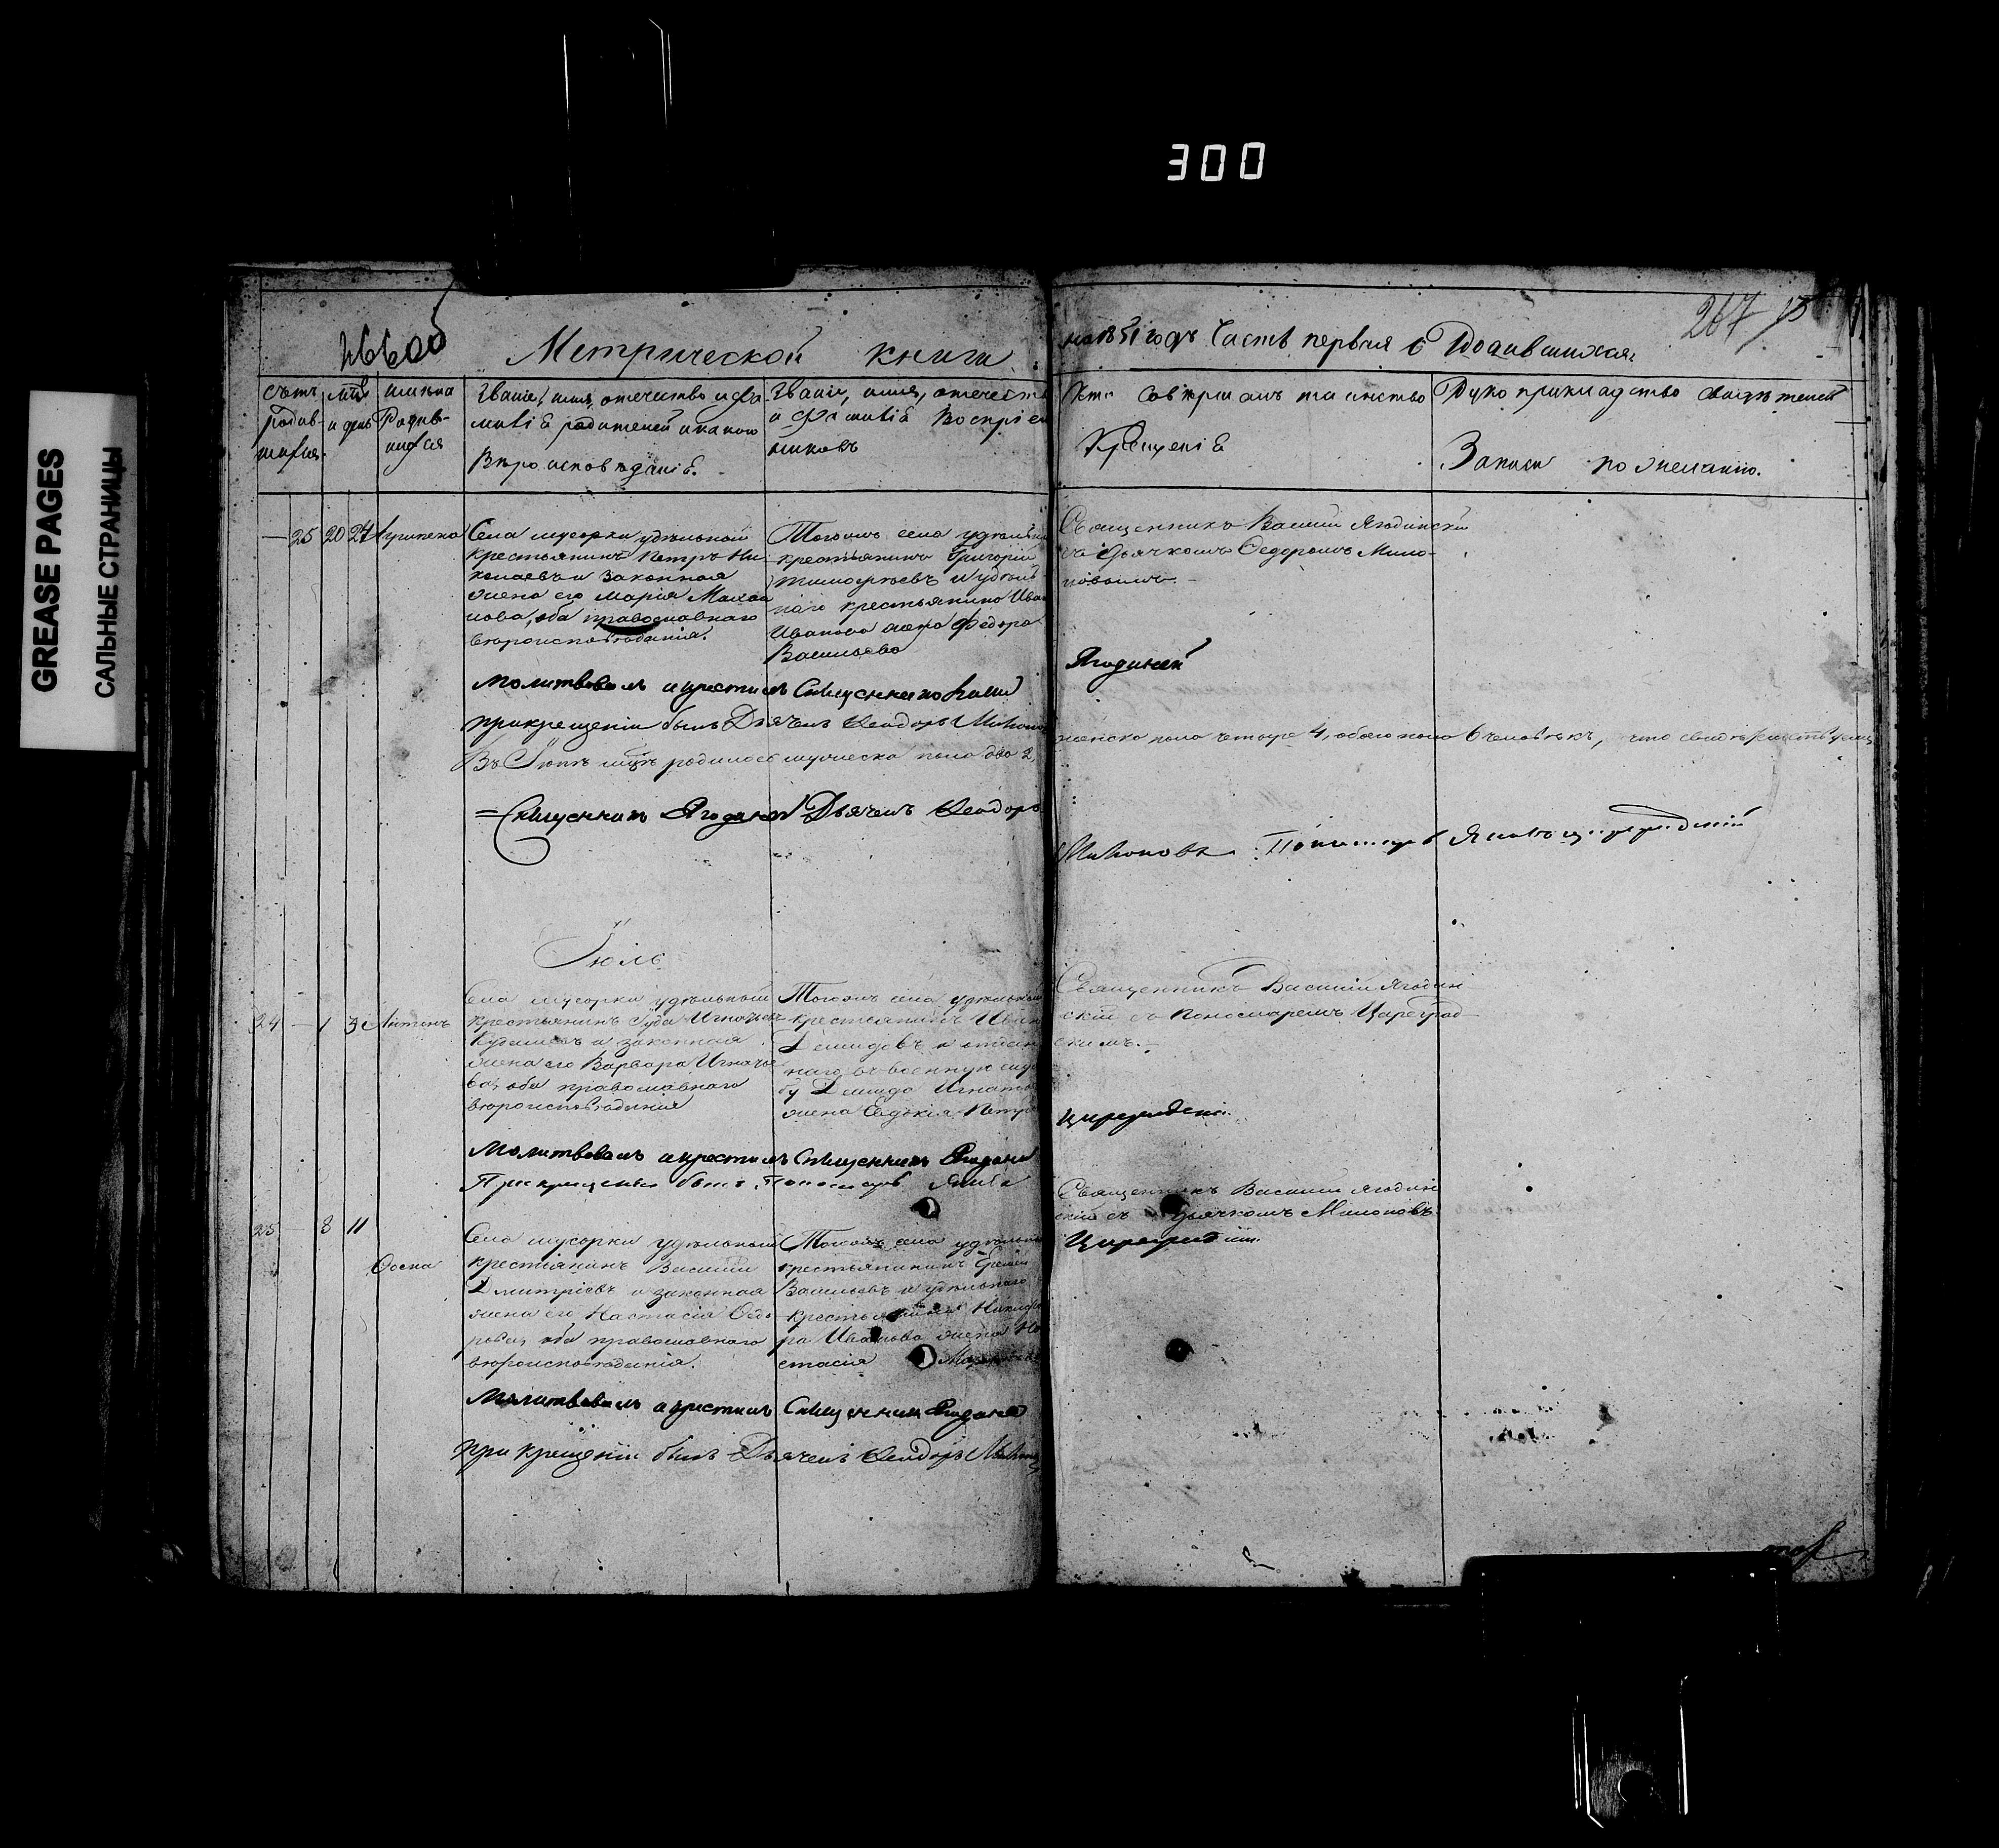 300
GREASE PAGES
САЛЬНЫЕ СТРАНИЦЫ
266об
Метрической книги
на 1851 годъ Часть первая о Родившихся.
267
Счетъ родив-шихся.
Мцъ и день
имена Родив-шихся
Званіе, имя, отечество и фа-
миліѣ родителей и какого
Вѣроисповѣданіѣ.
Званіе, имя, отечеств
и Фамиліѣ Воспріем
никовъ
Кто совершалъ таинство
Крещеніѣ
Рукоприкладство свидѣтелей
Записи по желанію.
25 20 24 Агрипена
Села мусорки удѣльной
крестьянинъ Петръ Ни-
колаевъ и законная
жена его Марія
оба православнаго
вѣроисповѣданія.
Тогожъ села удѣльный
крестьянинъ Григорій
Тимофѣевъ и удѣль
наго крестьянина Ива
Иванова жена Федора
Васильева
Священникъ Василій Ягодинскій
съ дьячкомъ Федоромъ Мило-
новымъ.
Молитвовалъ и крестилъ Священникъ Василій
Ягодинскій
при крещеніи былъ Дьячекъ Феодоръ Милоно
Въ Іюнѣ мцѣ родилось мужеска пола два 2,
женска пола четыре 4, обоего пола 6 человѣкъ, что свидѣтельствуемъ
Священникъ Ягодинскій Дьячекъ Феодоръ
Милоновъ Пономарь Яковъ Цареградскій
Іюль
24 1 3 Антонъ
Села мусорки удѣльный
крестьянинъ Іуда Игнатьевъ
и законная
жена его Варвара Игнатье
ва, оба православнаго
вѣроисповѣданія
Тогожъ села удѣльной
крестьянинъ Иванъ
Демидовъ и отдан
наго въ военную служ
бу Демида Игнатье
жена Евдокія Петро
Священникъ Василій Ягодин
скій съ Пономаремъ Цареград
скимъ.
Молитвовалъ и крестилъ Священникъ Ягодинскій
При крещеніи былъ Пономарь Яковъ
Цареградскій.
25 8 11
Села мусорки удѣльный
крестьянинъ Василій
Дмитріевъ и законная
жена его Настасія Федо
рова, оба православнаго
вѣроисповѣданія.
Тогожъ села удѣльный
крестьянинъ
Васильевъ и удѣльнаго
крестьянина Никифо
ра Иванова жена На
стасія
Священникъ Василій Ягодин
скій съ дьячкомъ Милоновъ
Молитвовалъ и крестилъ Священникъ Ягодинскій
при крещеніи былъ Дьячекъ Феодоръ Милоно